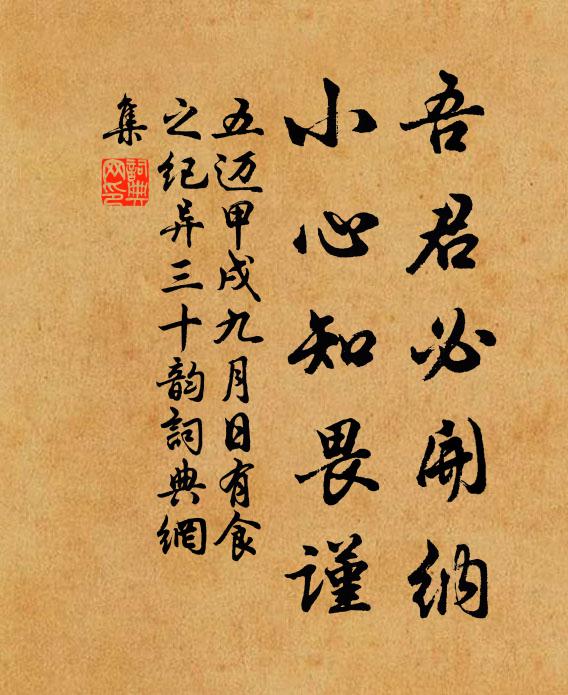 吾君必開納
小心知畏謹
五迈甲戌九月日有食
之纪异三十韵詞典網
集
詞典
网印